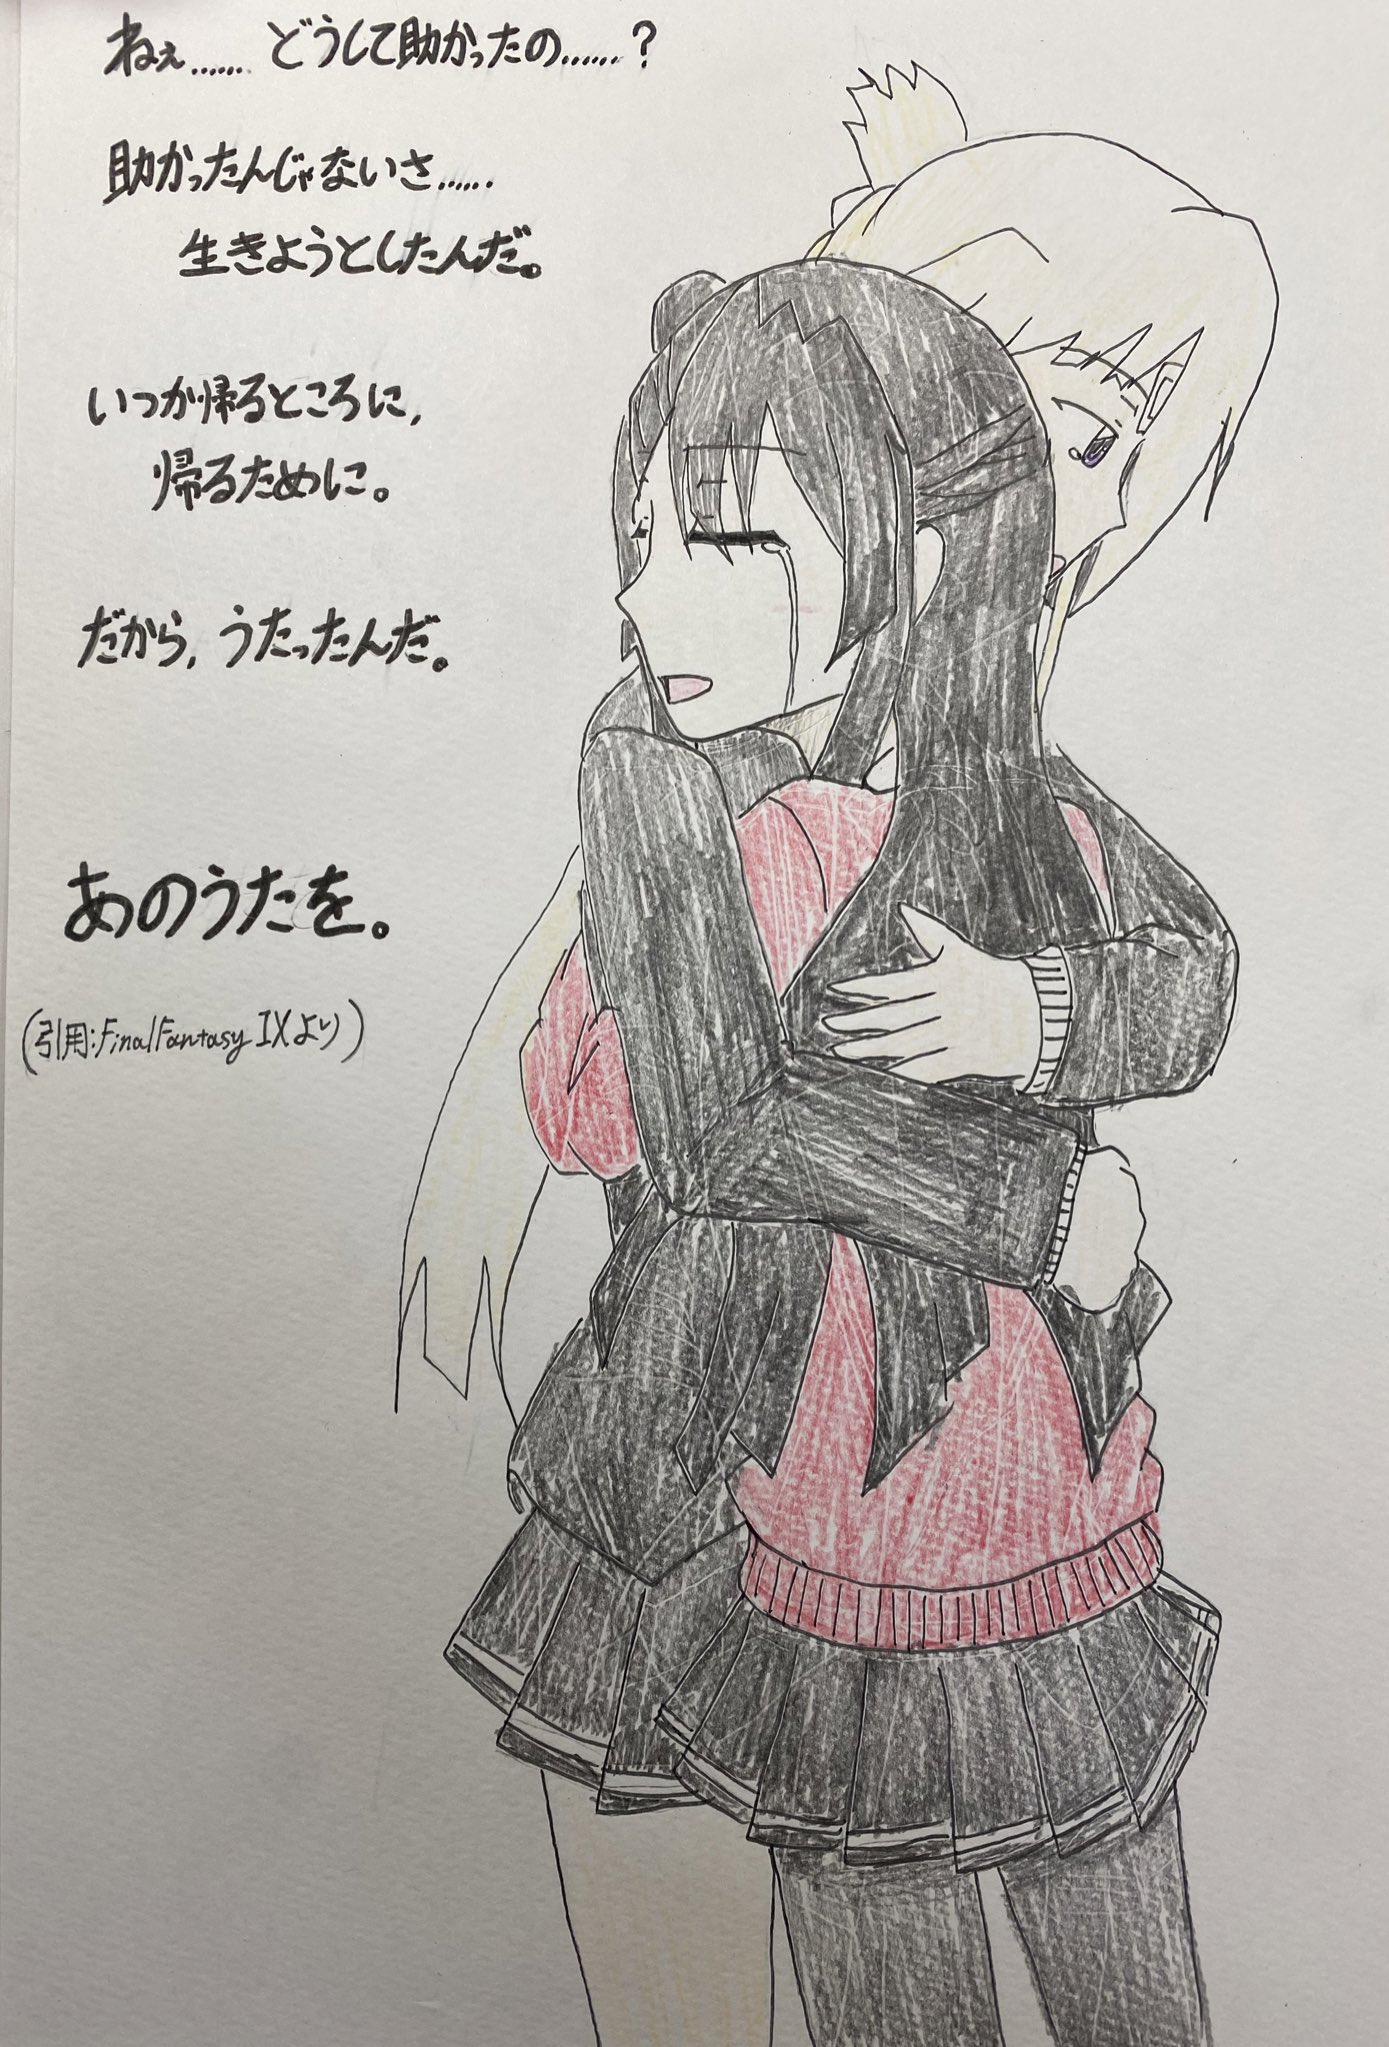 ねぇ…… どうして助かったの……?
助かったんじゃないさ……
生きようとしたんだ。
いつか帰るところに,
帰るために。
だから, うたったんだ。
あのうたを。
(引用:Final Fantasy IXより)